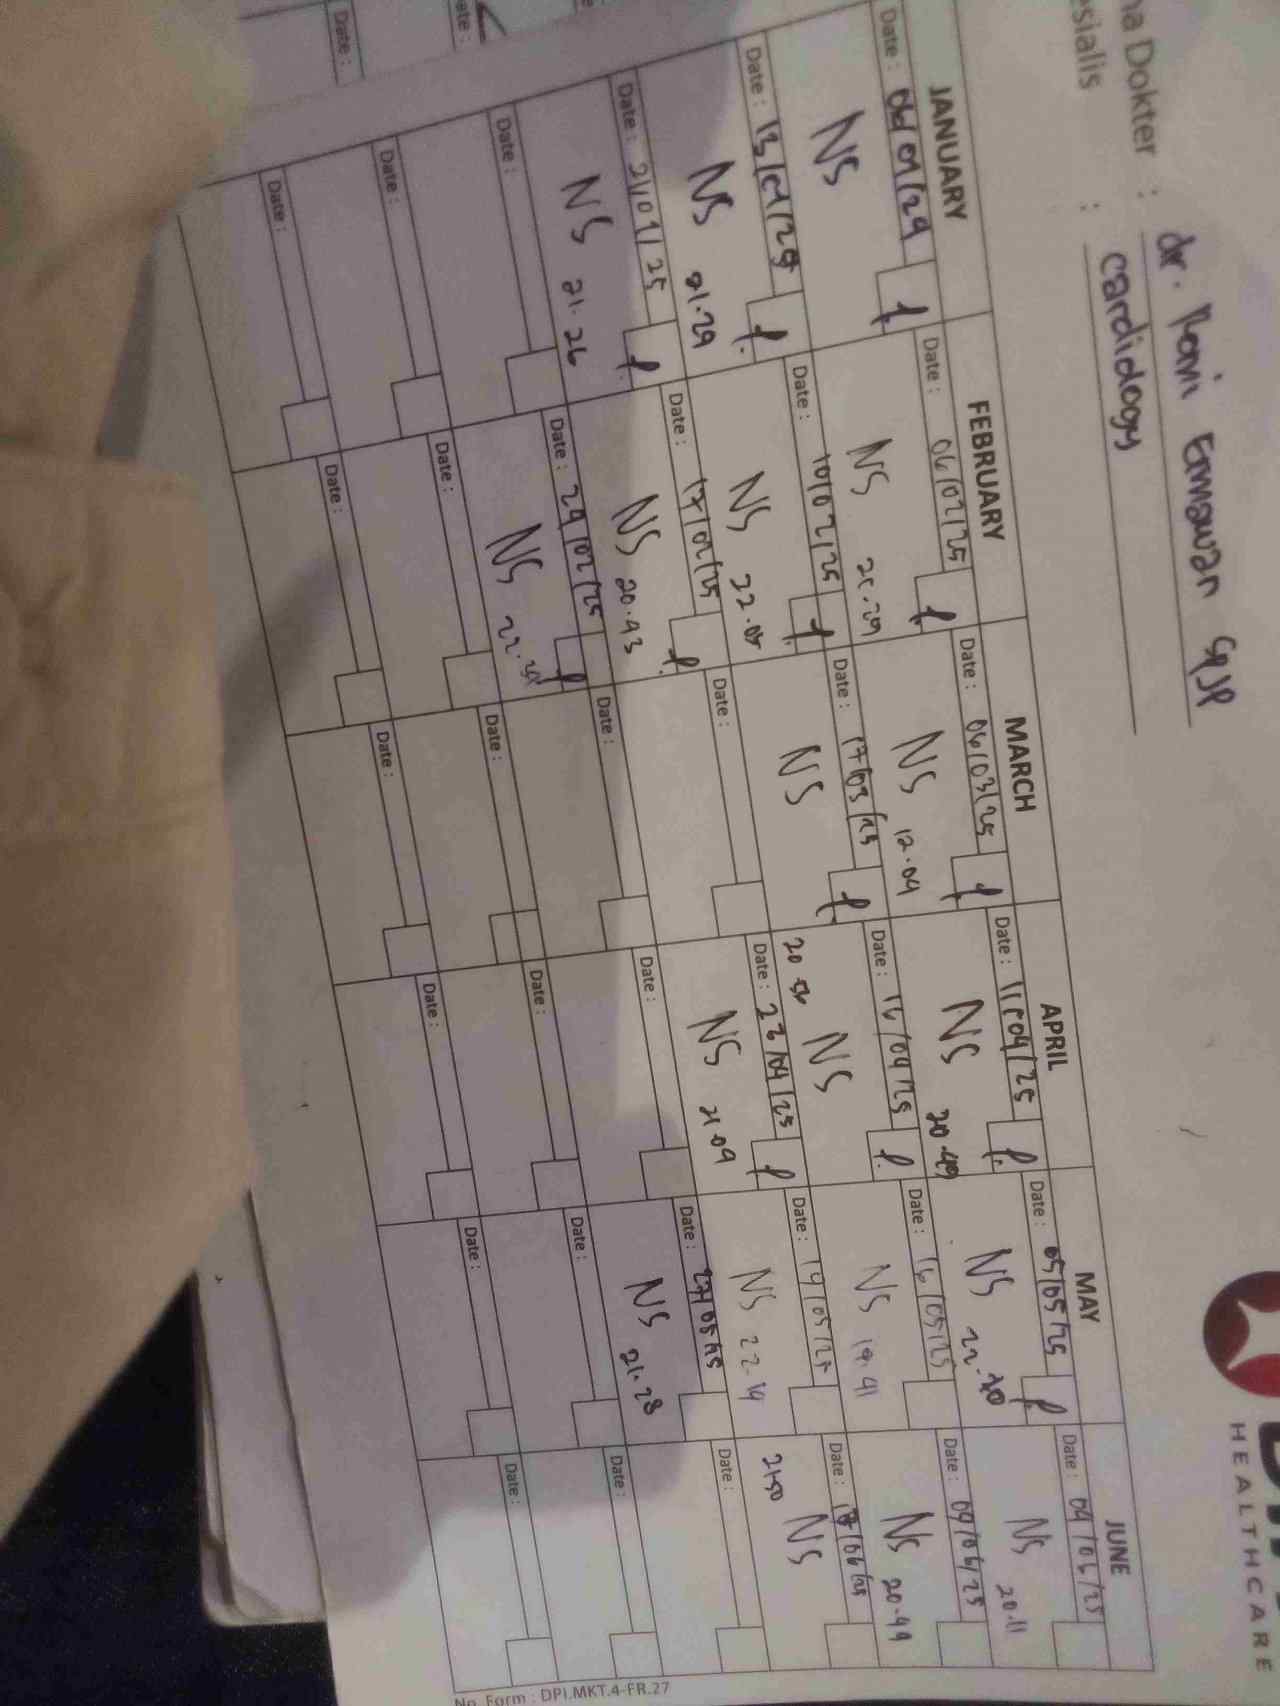 na Dokter : dr. Roni Ermawan SpJP
esialis : cardiology
HEALTHCARE
JANUARY
Date : 06/01/24
NS
Date : 13/01/25
NS 21.29
Date : 21/01/25
NS 21.26
Date :
Date :
Date :
FEBRUARY
Date : 06/02/25
NS 21.29
Date : 10/02/25
NS 22.05
Date : 17/02/25
NS 20.43
Date : 24/02/25
NS
Date :
Date :
MARCH
Date : 06/03/25
NS 12.09
Date : 17/03/25
NS
Date :
Date :
Date :
Date :
APRIL
Date : 11/04/25
NS 20.49
Date : 16/04/25
20.56 NS
Date : 23/04/25
NS 21.09
Date :
Date :
Date :
MAY
Date : 05/05/25
NS 22.20
Date : 16/05/25
NS 19.41
Date : 19/05/25
NS 22.14
Date : 27/05/25
NS 21.28
Date :
Date :
JUNE
Date : 04/06/25
NS 20.11
Date : 09/06/25
NS 20.49
Date : 17/06/25
21.50 NS
Date :
Date :
Date :
No. Form : DPI.MKT.4-FR.27
Date :
ate :